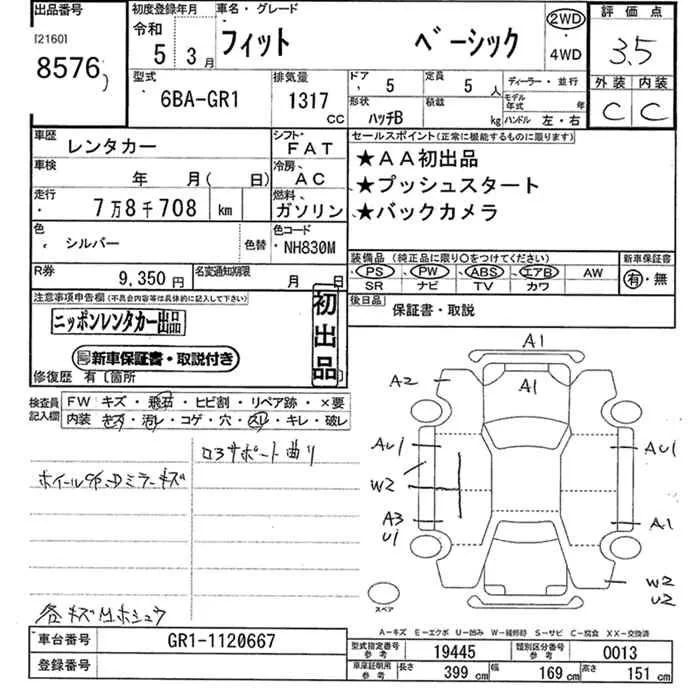 出品番号
[2160]
8576
初度登録年月
令和
5 3月
車名・グレード
フィット ベーシック
2WD
・
4WD
評価点
3.5
外装 内装
C C
型式
6BA-GR1
排気量
1317
CC
ドア 5
形状 ハッチB
定員 5 人
積載 kg
ディーラー・並行
モデル年式 年
ハンドル 左・右
車歴 レンタカー
シフト FAT
車検 年 月( 日)
冷房 AC
走行 7万8千708 km
燃料 ガソリン
色 シルバー 色替
色コード NH830M
R券 9,350円
名変通知期限 月 日
セールスポイント(正常に機能するものに限ります)
★AA初出品
★プッシュスタート
★バックカメラ
装備品(純正品に限り〇をつけてください)
PS PW ABS エアB AW
SR ナビ TV カワ
新車保証書
有・無
後日品 保証書・取説
注意事項申告欄(不具合内容等は具体的に記入して下さい)
ニッポンレンタカー出品
新車保証書・取説付き
初出品
修復歴 有〔箇所 〕
検査員記入欄
FW キズ・飛石・ヒビ割・リペア跡・×要
内装 キズ・汚レ・コゲ・穴・スレ・キレ・破レ
ロアサポート曲り
各キズ凹ホシュウ
A1
A2
A1
AU1
AU1
W2
A3
U1
A1
W2
U2
スペア
A-キズ E-エクボ U-凹み W-補修跡 S-サビ C-腐食 XX-交換済
車台番号 GR1-1120667
登録番号
型式指定番号 参考 19445
類別区分番号 参考 0013
車庫証明用 参考 長さ 399 cm 幅 169 cm 高さ 151 cm